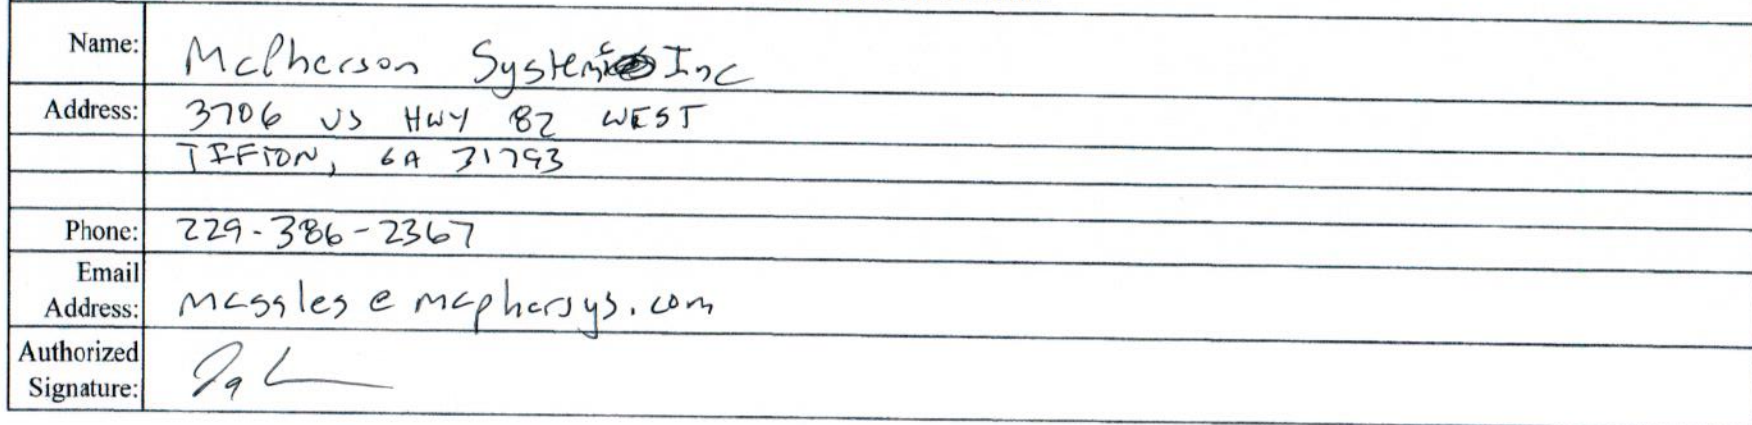 Name: McPherson Systems Inc
Address: 3706 US HWY 82 WEST
TIFTON, GA 31793
Phone: 229-386-2367
Email
Address: @ mcphersys.com
Authorized
Signature: